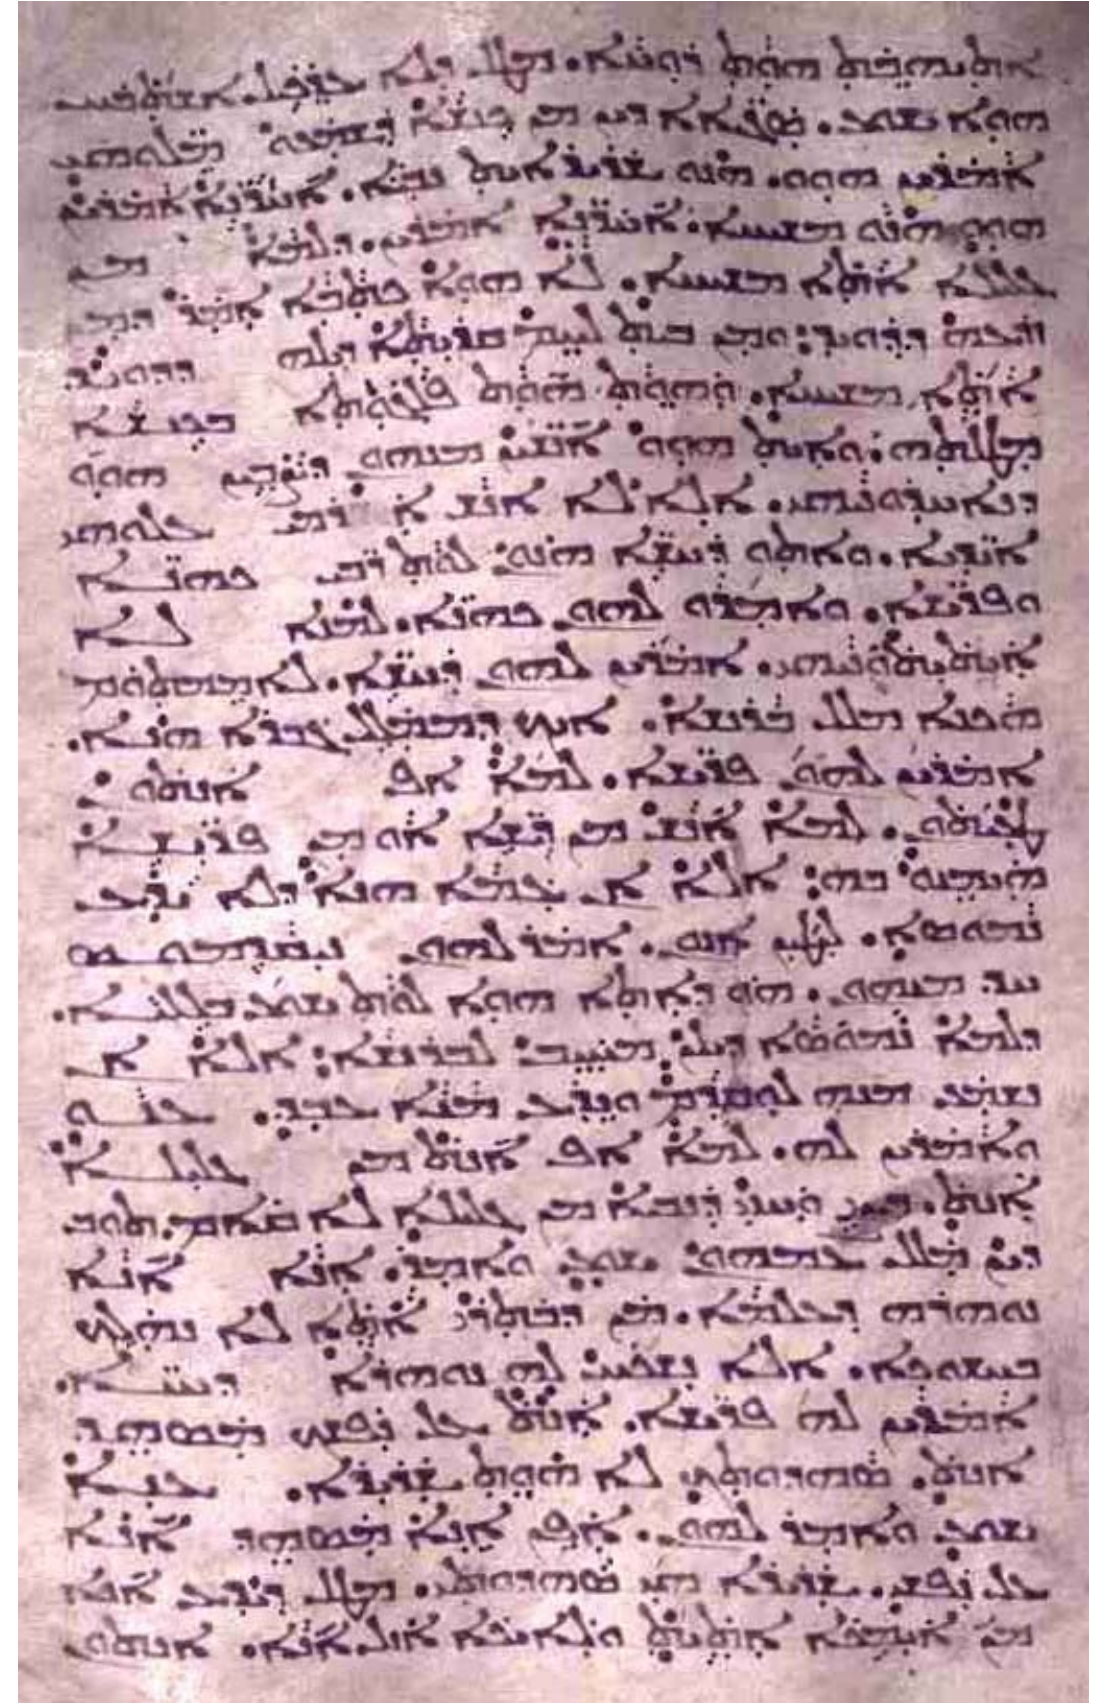 ܐܬܝܗܒܬ ܗܘܬ ܪܘܚܐ. ܡܛܠ ܕܠܐ ܥܕܟܝܠ ܐܫܬܒܚ
ܗܘܐ ܝܫܘܥ. ܣܓܝܐܐ ܕܝܢ ܡܢ ܟܢܫܐ ܕܫܡܥܘ ܡܠܘܗܝ
ܐܡܪܝܢ ܗܘܘ. ܗܢܘ ܫܪܝܪܐܝܬ ܢܒܝܐ. ܐܚܪܢܐ ܐܡܪܝܢ
ܗܘܘ ܗܢܘ ܡܫܝܚܐ. ܐܚܪܢܐ ܐܡܪܝܢ. ܕܠܡܐ ܡܢ
ܓܠܝܠܐ ܐܬܐ ܡܫܝܚܐ. ܠܐ ܗܘܐ ܟܬܒܐ ܐܡܪ ܕܡܢ
ܙܪܥܗ ܕܕܘܝܕ: ܘܡܢ ܒܝܬ ܠܚܡ ܩܪܝܬܐ ܕܝܠܗ ܕܕܘܝܕ
ܐܬܐ ܡܫܝܚܐ. ܘܗܘܬ ܗܘܬ ܦܠܓܘܬܐ ܒܟܢܫܐ
ܡܛܠܬܗ. ܘܐܝܬ ܗܘܘ ܐܢܫܝܢ ܡܢܗܘܢ ܕܨܒܝܢ ܗܘܘ
ܕܢܐܚܕܘܢܝܗܝ. ܐܠܐ ܠܐ ܐܢܫ ܐܪܡܝ ܥܠܘܗܝ
ܐܝܕܝܐ. ܘܐܬܘ ܕܚܫܐ ܗܢܘܢ ܠܘܬ ܪܒܝ ܟܗܢܐ
ܘܦܪܝܫܐ. ܘܐܡܪܘ ܠܗܘܢ ܟܗܢܐ. ܠܡܢܐ ܠܐ
ܐܝܬܝܬܘܢܝܗܝ. ܐܡܪܝܢ ܠܗܘܢ ܕܚܫܐ. ܠܐ ܡܡܬܘܡ
ܗܟܢܐ ܡܠܠ ܒܪܢܫܐ. ܐܝܟ ܕܡܡܠܠ ܓܒܪܐ ܗܢܐ.
ܐܡܪܝܢ ܠܗܘܢ ܦܪܝܫܐ. ܠܡܐ ܐܦ ܐܢܬܘܢ
ܛܥܝܬܘܢ. ܠܡܐ ܐܢܫ ܡܢ ܪܫܐ ܐܘ ܡܢ ܦܪܝܫܐ
ܗܝܡܢܘ ܒܗ: ܐܠܐ ܐܢ ܥܡܐ ܗܢܐ ܕܠܐ ܝܕܥ
ܢܡܘܣܐ. ܠܝܛܝܢ ܐܢܘܢ. ܐܡܪ ܠܗܘܢ ܢܝܩܕܡܘܣ
ܚܕ ܡܢܗܘܢ. ܗܘ ܕܐܬܐ ܗܘܐ ܠܘܬ ܝܫܘܥ ܒܠܠܝܐ.
ܕܠܡܐ ܢܡܘܣܐ ܕܝܠܢ ܡܚܝܒ ܠܒܪܢܫܐ: ܐܠܐ ܐܢ
ܢܫܡܥ ܡܢܗ ܠܘܩܕܡ ܘܢܕܥ ܡܢܐ ܥܒܕ. ܥܢܘ
ܘܐܡܪܝܢ ܠܗ. ܠܡܐ ܐܦ ܐܢܬ ܡܢ ܓܠܝܠܐ
ܐܢܬ. ܒܨܝ ܘܚܙܝ ܕܢܒܝܐ ܡܢ ܓܠܝܠܐ ܠܐ ܩܐܡ. ܬܘܒ
ܕܝܢ ܡܠܠ ܥܡܗܘܢ ܝܫܘܥ ܘܐܡܪ. ܐܢܐ ܐܢܐ
ܢܘܗܪܗ ܕܥܠܡܐ. ܡܢ ܕܒܬܪܝ ܐܬܐ ܠܐ ܢܗܠܟ
ܒܚܫܘܟܐ. ܐܠܐ ܢܫܟܚ ܠܗ ܢܘܗܪܐ ܕܚܝܐ.
ܐܡܪܝܢ ܠܗ ܦܪܝܫܐ. ܐܢܬ ܥܠ ܢܦܫܟ ܡܣܗܕ
ܐܢܬ. ܣܗܕܘܬܟ ܠܐ ܗܘܬ ܫܪܝܪܐ. ܥܢܐ
ܝܫܘܥ ܘܐܡܪ ܠܗܘܢ. ܐܦܢ ܐܢܐ ܡܣܗܕ ܐܢܐ
ܥܠ ܢܦܫܝ. ܫܪܝܪܐ ܗܝ ܣܗܕܘܬܝ. ܡܛܠ ܕܝܕܥ ܐܢܐ
ܡܢ ܐܝܡܟܐ ܐܬܝܬ ܘܠܐܝܟܐ ܐܙܠ ܐܢܐ. ܐܢܬܘܢ